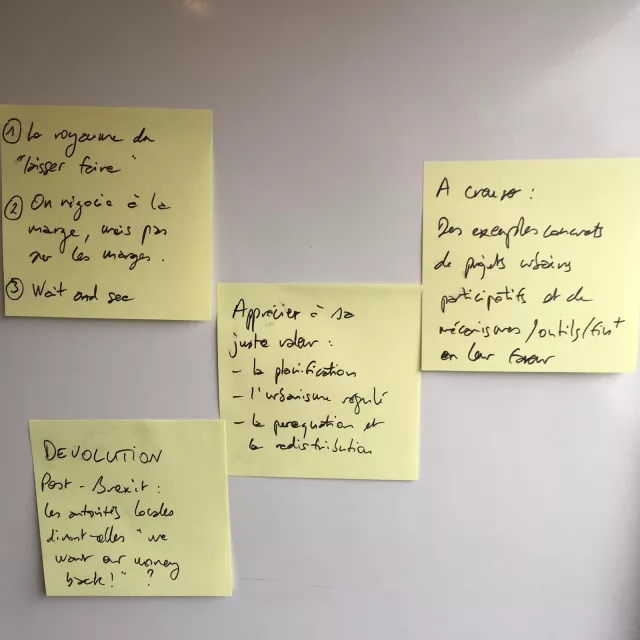 ① Le royaume du
"laisser faire"
② On négocie à la
marge, mais pas
sur les marges.
③ Wait and see
Apprécier à sa
juste valeur :
- la planification
- l'urbanisme régulé
- la perequation et
la redistribution
A creuser :
Des exemples concrets
de projets urbains
participatifs et de
mécanismes/outils/fint
en leur faveur
DEVOLUTION
Post-Brexit :
les autorités locales
diront-elles "we
want our money
back!" ?